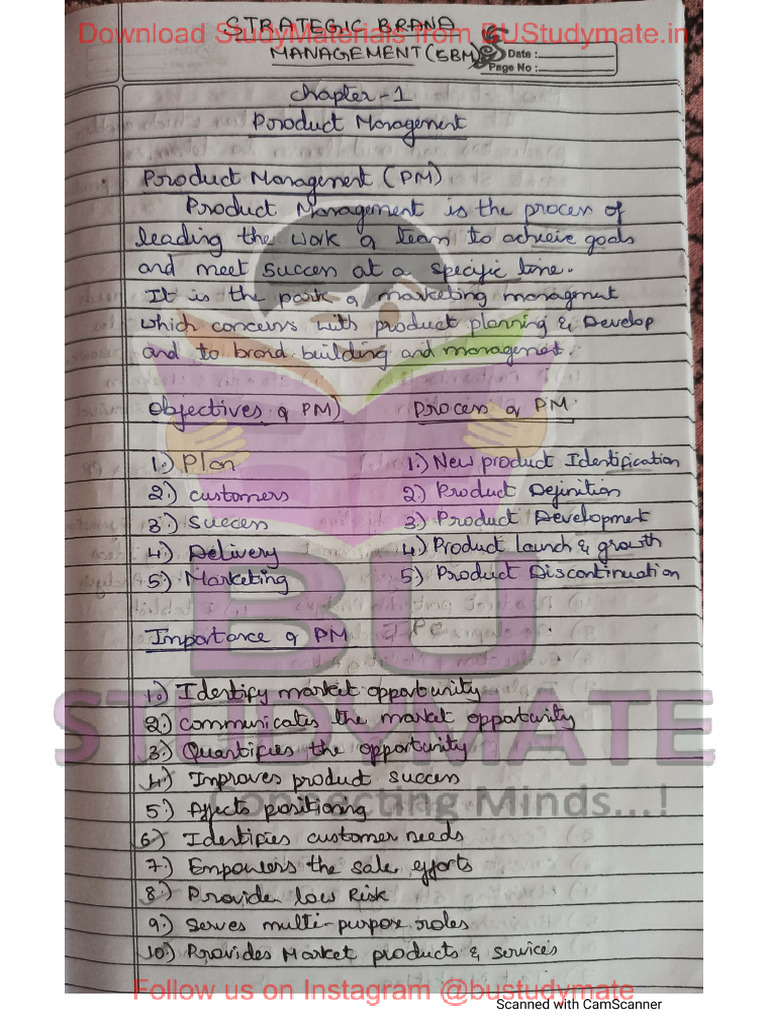 Download StudyMaterials from BUStudymate.in
STRATEGIC BRAND
MANAGEMENT (SBM)
Date :
Page No :
Chapter - 1
Product Management
Product Management (PM)
Product Management is the process of
leading the work of team to achieve goals
and meet success at a specific time.
It is the part of marketing management
which concerns with product planning & Develop
and to brand building and management.
Objectives of PM) Process of PM
1.) Plan 1.) New product Identification
2.) customers 2.) Product Definition
3.) Success 3.) Product Development
4.) Delivery 4.) Product launch & growth
5.) Marketing 5.) Product Discontinuation
Importance of PM IPC
1.) Identify market opportunity
2.) Communicates the market opportunity
3.) Quantifies the opportunity
4.) Improves product success
5.) Affects positioning
6.) Identifies customer needs
7.) Empowers the sale efforts
8.) Provides low Risk
9.) Serves multi-purpose roles
10.) Provides Market products & services
BU
STUDYMATE
Connecting Minds...!
Follow us on Instagram @bustudymate
Scanned with CamScanner